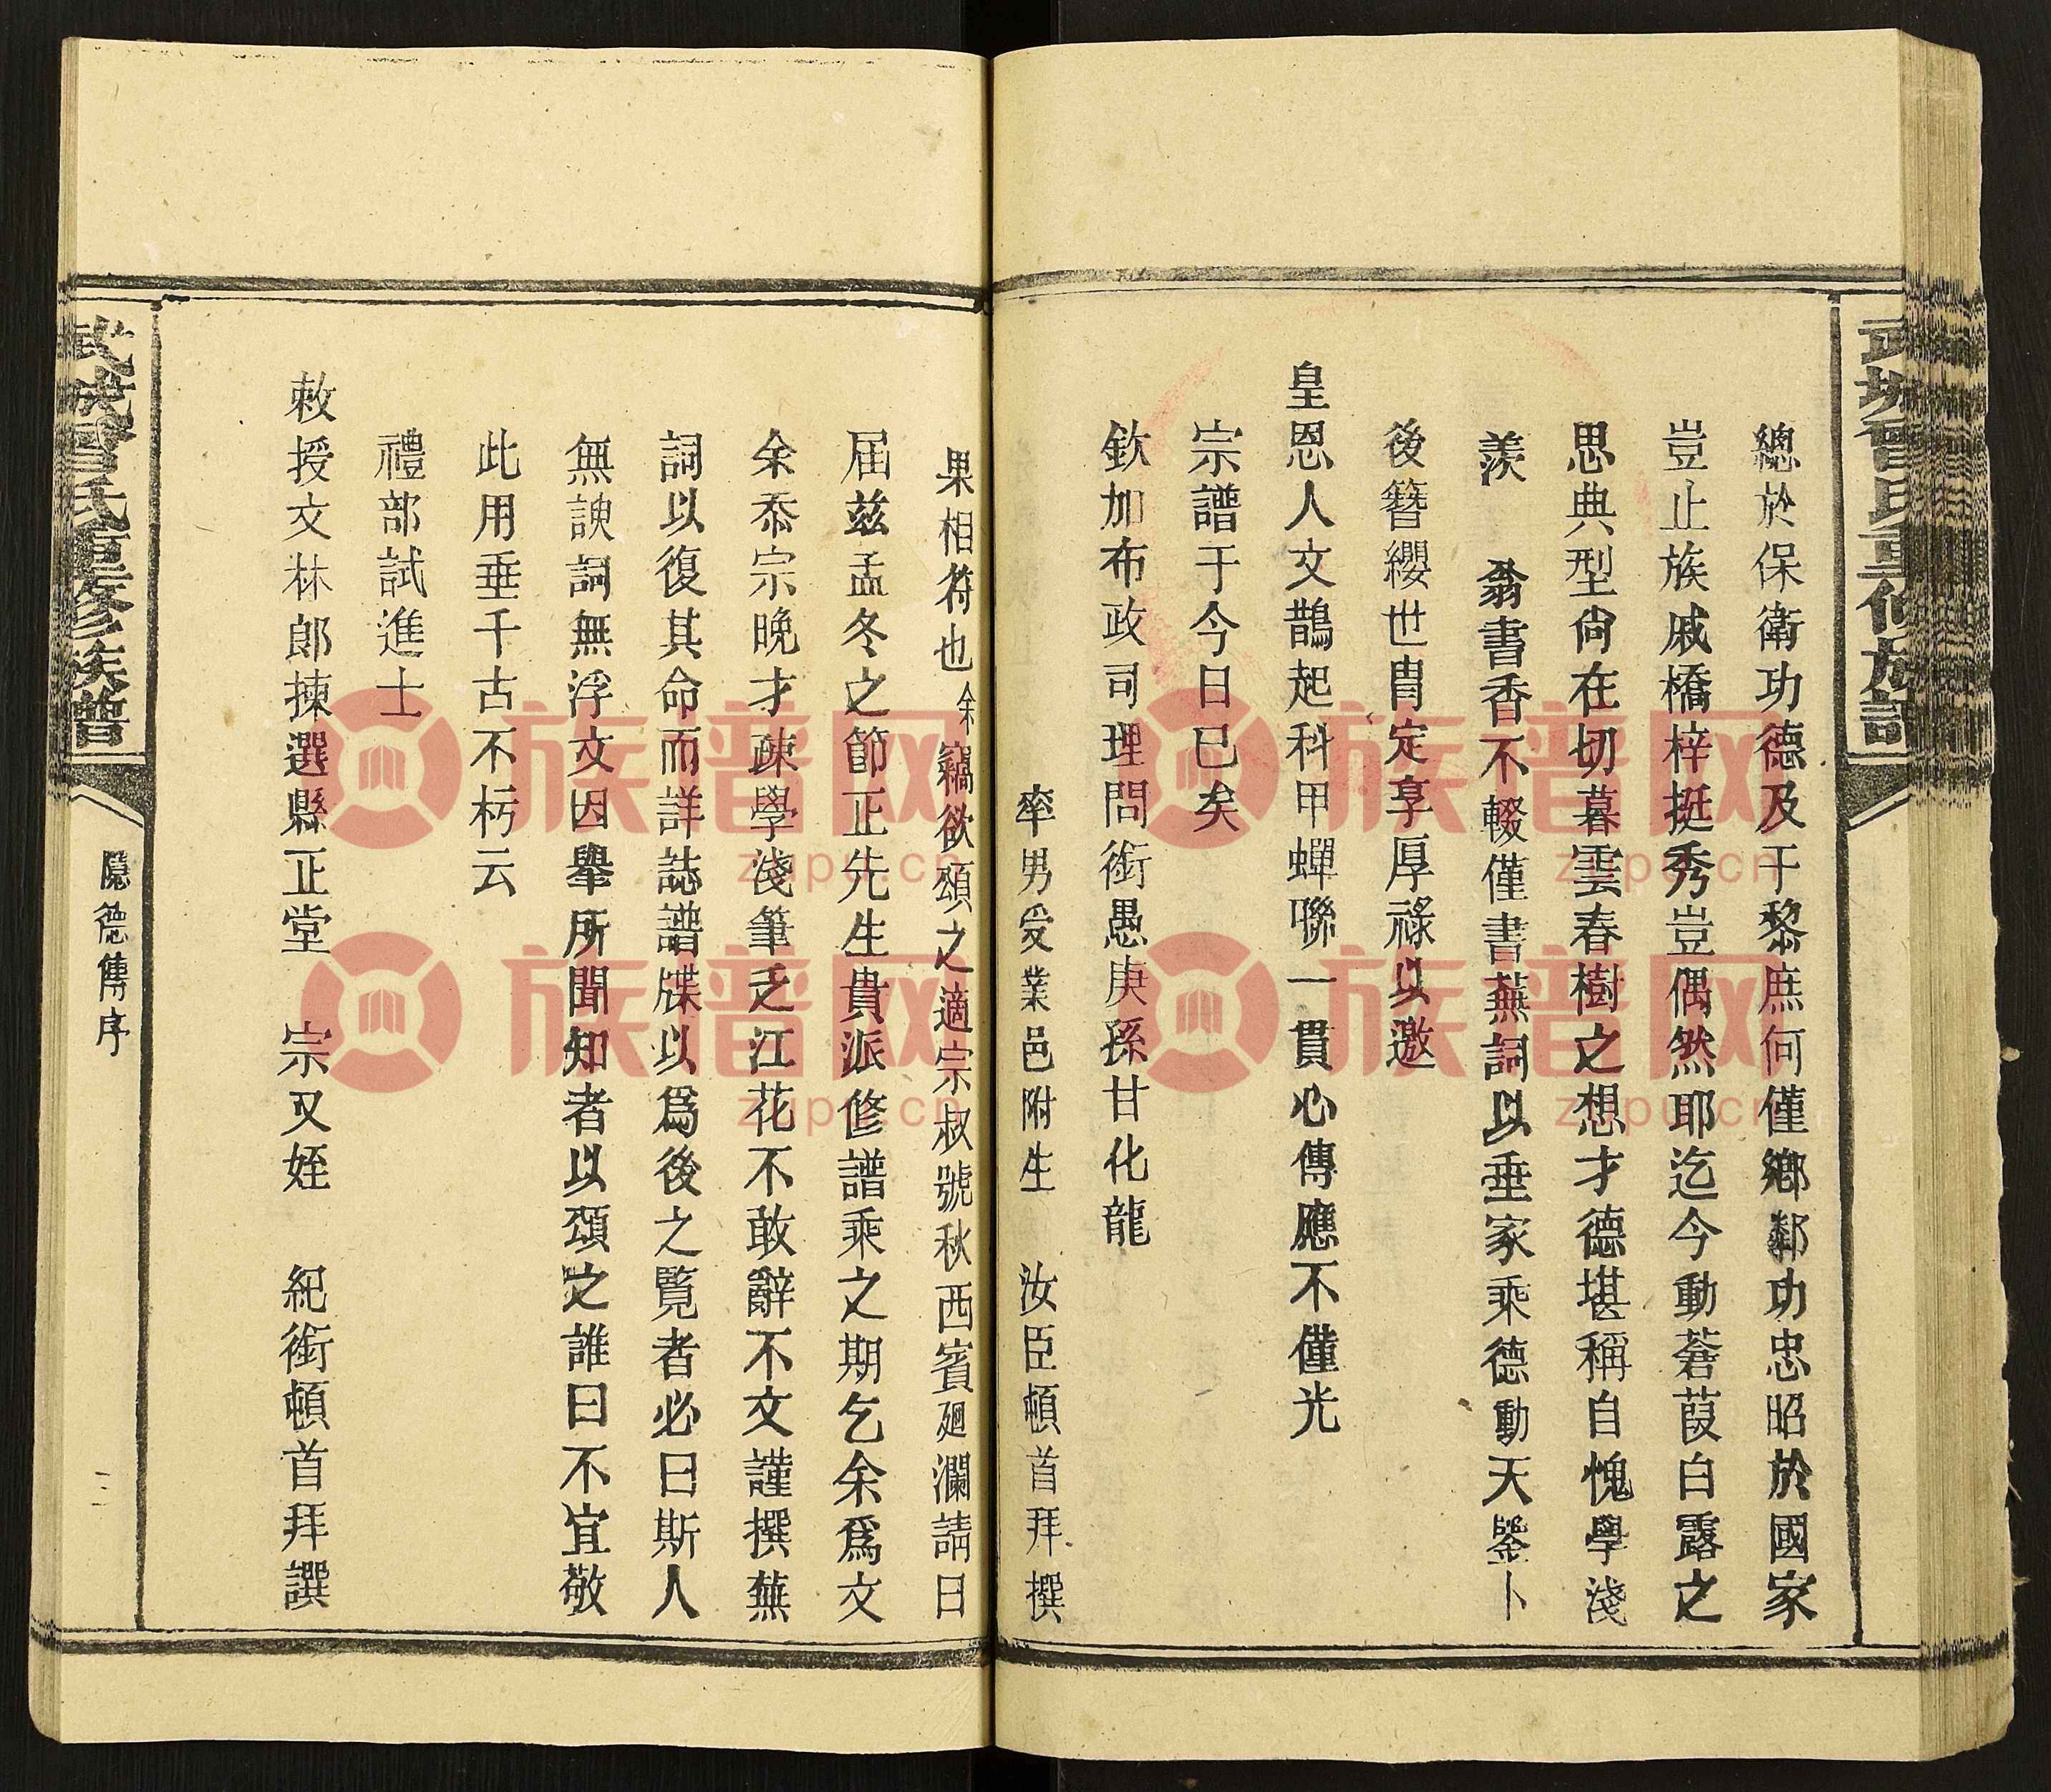 武城曾氏重修族譜
總於保衛功德及于黎庶何僅鄉鄰功忠昭於國家
豈止族戚橋梓挺秀豈偶然耶迄今動蒼葭白露之
思典型尙在切暮雲春樹之想才德堪稱自愧學淺
羨 翁書香不輟僅書蕪詞以垂家乘德動天鑒卜
後簪纓世冑定享厚祿以邀
皇恩人文鵲起科甲蟬聯一貫心傳應不僅光
宗譜于今日已矣
欽加布政司理問銜愚庚孫甘化龍
率男受業邑附生 汝臣頓首拜撰
果相符也余竊欲頌之適宗叔號秋西賓廻瀾請曰
届兹孟冬之節正先生貴派修譜乘之期乞余爲文
余忝宗晚才疎學淺筆乏江花不敢辭不文謹撰蕪
詞以復其命而詳誌譜牒以爲後之覽者必曰斯人
無諛詞無浮文因舉所聞知者以頌之誰曰不宜敬
此用垂千古不朽云
禮部試進士
敕授文林郎揀選縣正堂 宗又姪 紀銜頓首拜譔
武城曾氏重修族譜
隱德傳序
二
族譜网
zupu.cn
族譜网
zupu.cn
族譜网
zupu.cn
族譜网
zupu.cn